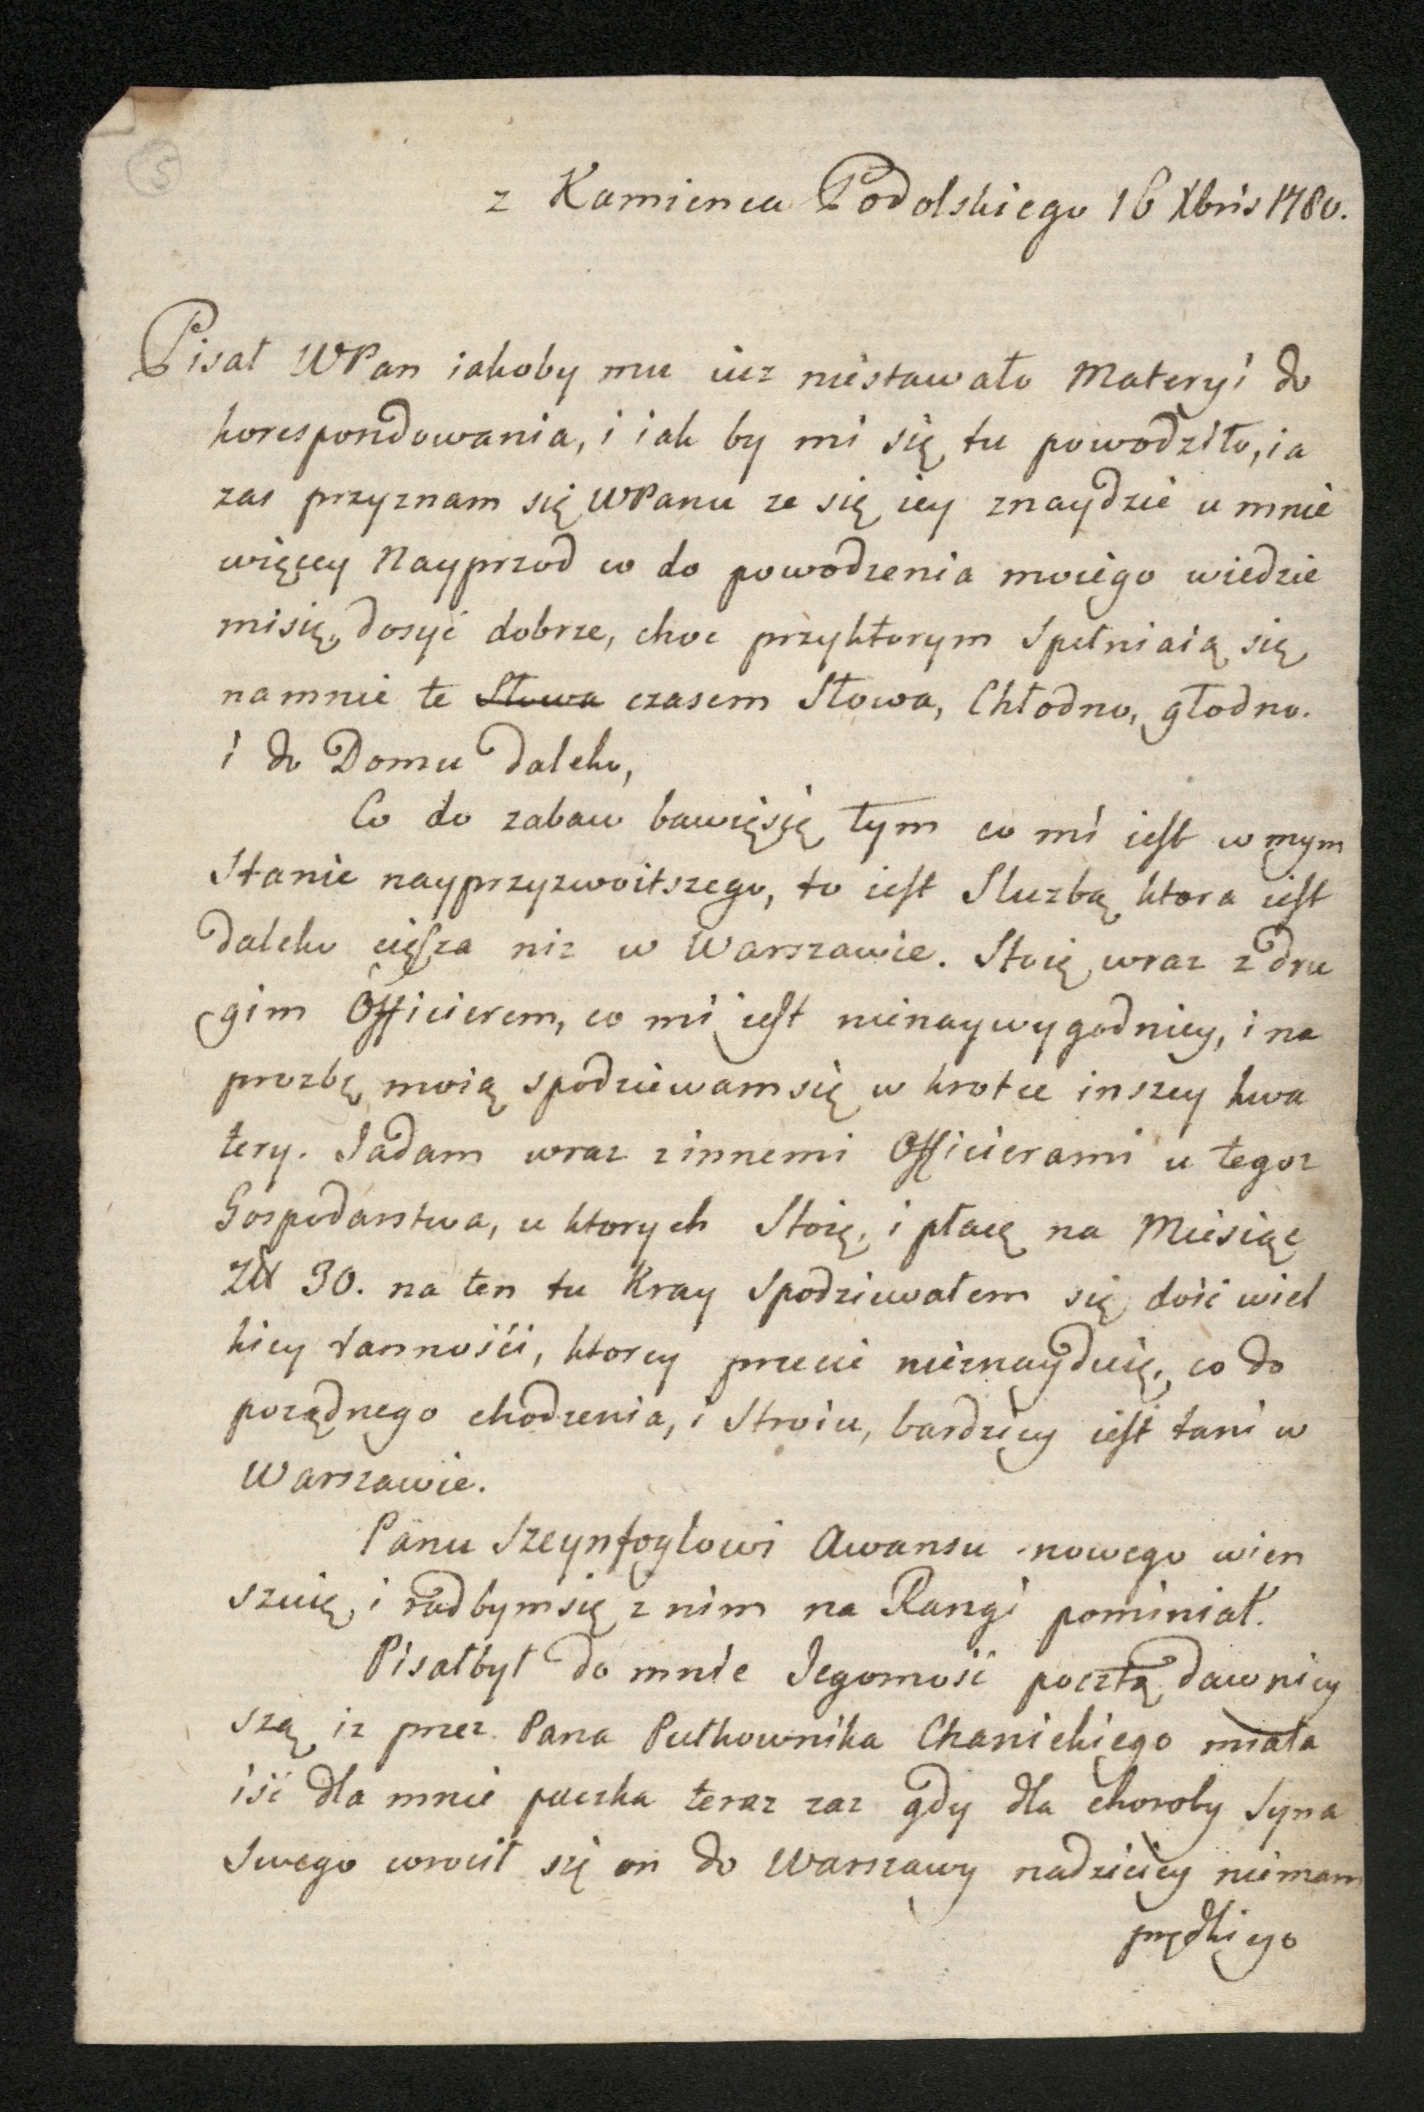 5
z Kamienca Podolskiego 16 Xbris 1780.
Pisał WPan iakoby mu iuz niestawało Materyi do
korespondowania, i iak by mi się tu powodziło, ia
zas przyznam się WPanu ze się iey znaydzie u mnie
więcey Nayprzod co do powodzenia moiego wiedzie
misię dosyć dobrze, choc przyktorym Spełniaią się
namnie te Słowa czasem Słowa, Chłodno, głodno.
i do Domu daleko,
Co do zabaw bawięsię tym co mi iest w mym
Stanie nayprzyzwoitszego, to iest Sluzbą ktora iest
daleko cięsza niz w Warszawie. Stoię wraz z dru
gim Officierem, co mi iest nienaywygodniey, i na
prozbę moią spodziewamsię w krotce inszey kwa
tery. Jadam wraz zinnemi Officierami u tegoz
Gospodarstwa, u ktorych Stoię, i płacę na Miesiąc
Zł 30. na ten tu Kray Spodziewałem się dość wiel
kiey tannośći, ktorey przecie nieznayduię, co do
porządnego chodzenia, i Stroiu, bardziey iest tani w
Warszawie.
Panu Szeynfoglowi Awansu nowego wien
szuię, i radbymsię z nim na Rangi pominiał.
Pisałbył do mnie Jegomość pocztą dawniey
szą iz przez Pana Pułkownika Chanickiego miała
iść dla mnie paczka teraz zaz gdy dla choroby Syna
Swego wrocił się on do Warszawy nadzieiey niemam
prędkiego